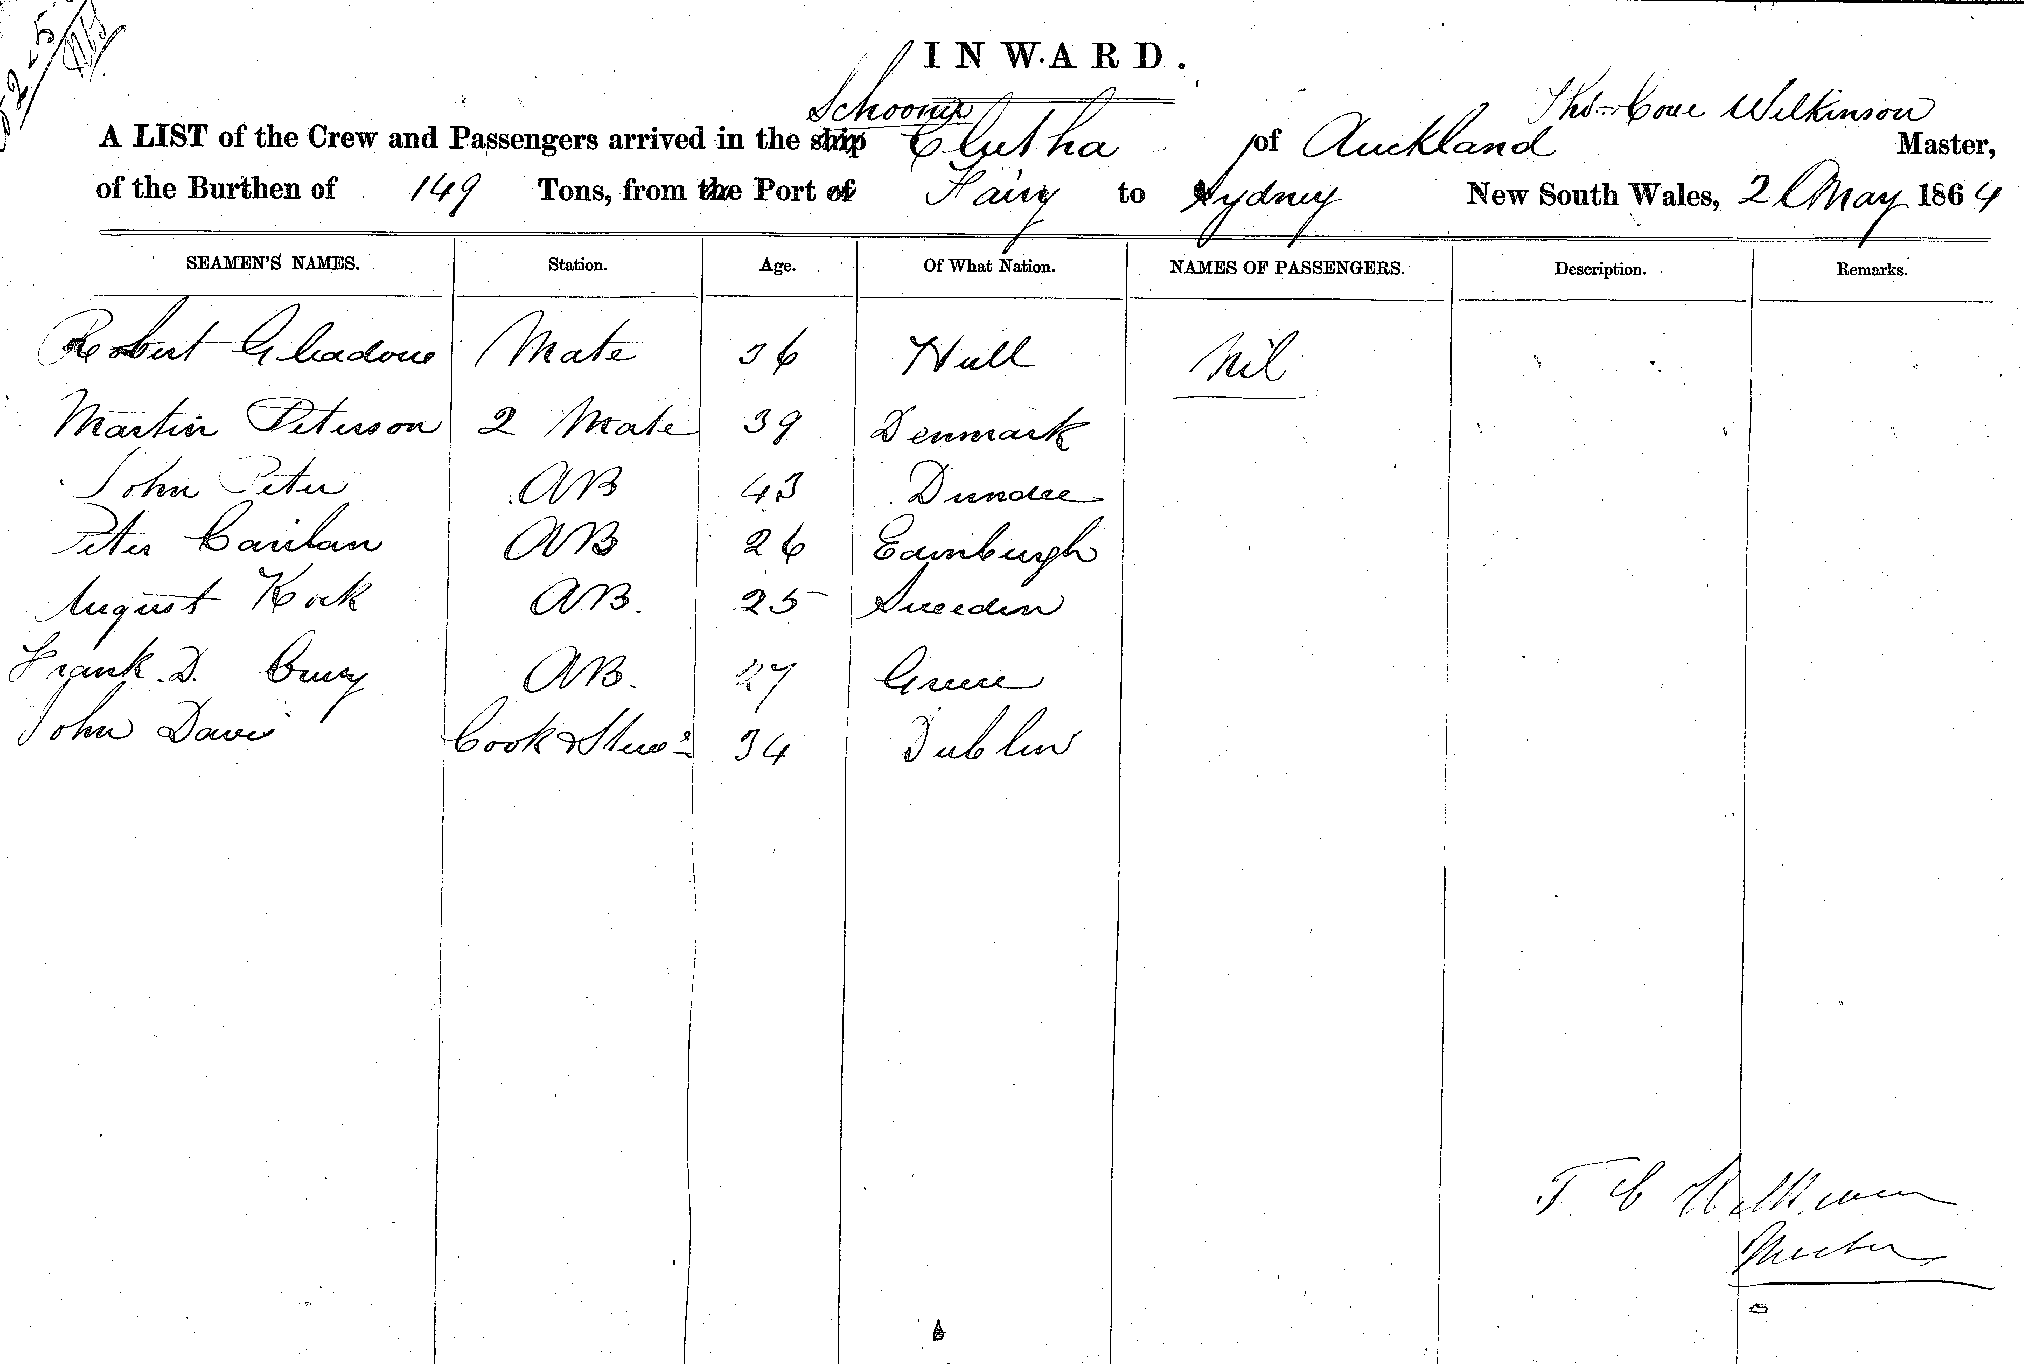 INWARD.
Schooner
Thos Coue Wilkinson
A LIST of the Crew and Passengers arrived in the ship Clutha of Auckland Master,
of the Burthen of 149 Tons, from the Port of to Sydney New South Wales, 2 May 1864
SEAMEN'S NAMES. Station. Age. Of What Nation. NAMES OF PASSENGERS. Description. Remarks.
Robert Mate 36 Hull Nil
Martin Peterson 2 Mate 39 Denmark
John Peter AB 43 Dundee
Peter AB 26 Edinburgh
August Kock AB. 25 Sweeden
Frank. D. AB. 27 Greece
John Davis Cook & Stewd 34 Dublin
T C Wilkinson
Master